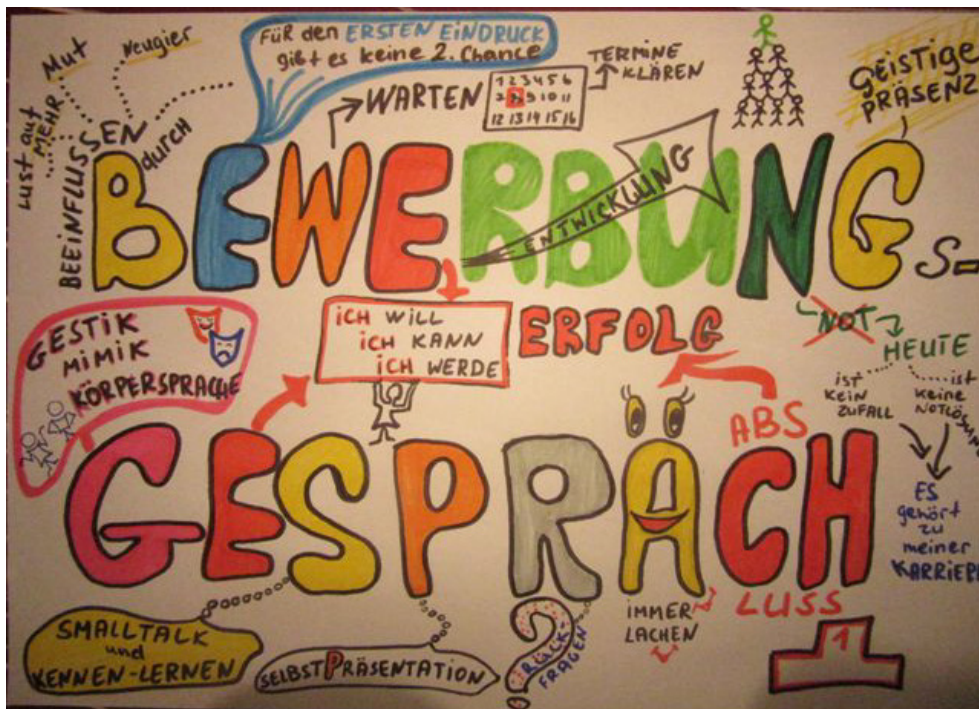 Mut
Neugier
Lust auf
MEHR
BEEINFLUSSEN
durch
FÜR den ERSTEN EINDRUCK
gibt es keine 2. Chance
WARTEN
1 2 3 4 5 6
9 10 11
12 13 14 15 16
TERMINE
KLÄREN
GEISTIGE
PRÄSENZ
BEWERBUNG
S-
ENTWICKLUNG
GESTIK
MIMIK
KÖRPERSPRACHE
iCH WILL
iCH KANN
iCH WERDE
ERFOLG
NOT
HEUTE
ist
KEIN
ZUFALL
ist
KEINE
NOTLÖSUNG
ES
gehört
zu
meiner
KARRIERE
GESPRÄCH
ABS
LUSS
SMALLTALK
und
KENNEN-LERNEN
SELBSTPRÄSENTATION
RÜCK-
FRAGEN
iMMER
LACHEN
1